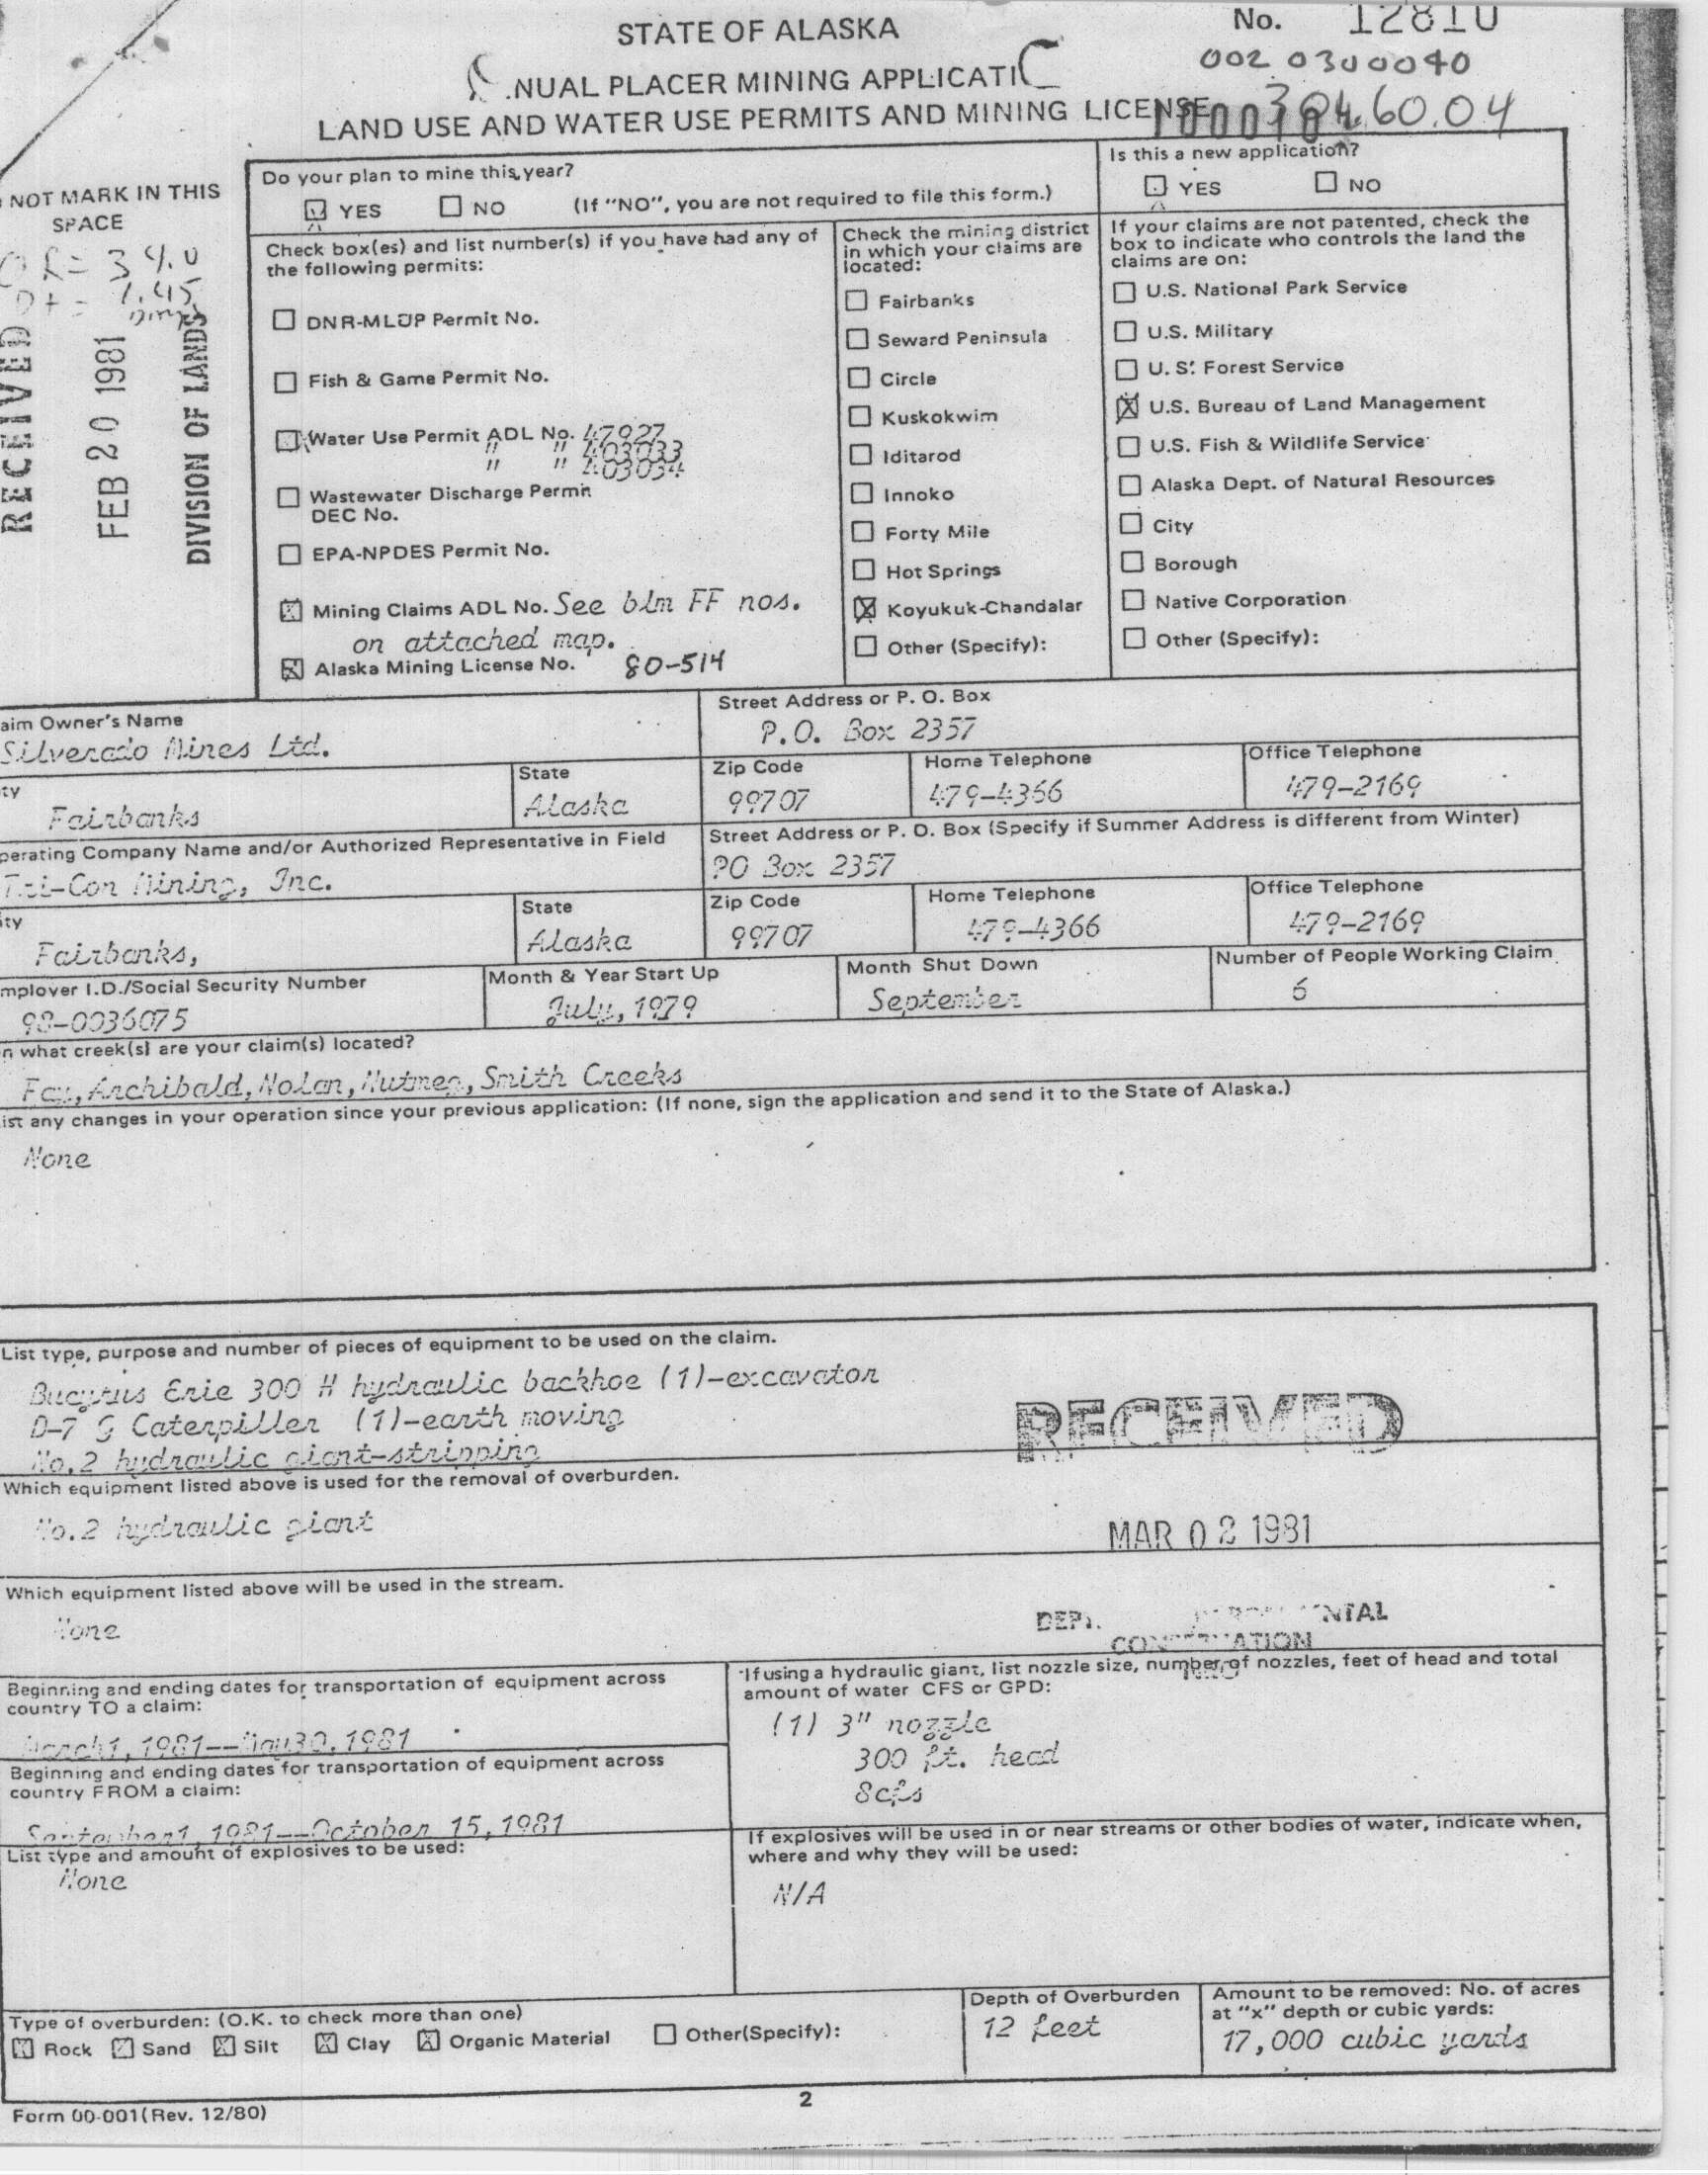 STATE OF ALASKA
No. 12810
002 0300040
.NUAL PLACER MINING APPLICATI
LAND USE AND WATER USE PERMITS AND MINING LICENSE
60.04
NOT MARK IN THIS
SPACE
RECEIVED
FEB 20 1981
DIVISION OF LANDS
Do your plan to mine this year?
YES NO (If "NO", you are not required to file this form.)
Is this a new application?
YES NO
Check box(es) and list number(s) if you have had any of
the following permits:
DNR-MLUP Permit No.
Fish & Game Permit No.
Water Use Permit ADL No. 47927
" " 403033
" " 403034
Wastewater Discharge Permit
DEC No.
EPA-NPDES Permit No.
Mining Claims ADL No. See blm FF nos.
on attached map.
Alaska Mining License No. 80-514
Check the mining district
in which your claims are
located:
Fairbanks
Seward Peninsula
Circle
Kuskokwim
Iditarod
Innoko
Forty Mile
Hot Springs
Koyukuk-Chandalar
Other (Specify):
If your claims are not patented, check the
box to indicate who controls the land the
claims are on:
U.S. National Park Service
U.S. Military
U. S. Forest Service
U.S. Bureau of Land Management
U.S. Fish & Wildlife Service
Alaska Dept. of Natural Resources
City
Borough
Native Corporation
Other (Specify):
aim Owner's Name
Silverado Mines Ltd.
Street Address or P. O. Box
P.O. Box 2357
ty
Fairbanks
State
Alaska
Zip Code
99707
Home Telephone
479-4366
Office Telephone
479-2169
perating Company Name and/or Authorized Representative in Field
Tri-Con Mining, Inc.
Street Address or P. O. Box (Specify if Summer Address is different from Winter)
PO Box 2357
ity
Fairbanks,
State
Alaska
Zip Code
99707
Home Telephone
479-4366
Office Telephone
479-2169
mployer I.D./Social Security Number
98-0036075
Month & Year Start Up
July, 1979
Month Shut Down
September
Number of People Working Claim
6
n what creek(s) are your claim(s) located?
Fay, Archibald, Nolan, Nutmeg, Smith Creeks
ist any changes in your operation since your previous application: (If none, sign the application and send it to the State of Alaska.)
None
List type, purpose and number of pieces of equipment to be used on the claim.
Bucyrus Erie 300 H hydraulic backhoe (1)-excavator
D-7 G Caterpiller (1)-earth moving
No.2 hydraulic giant-stripping
RECEIVED
Which equipment listed above is used for the removal of overburden.
No.2 hydraulic giant
MAR 02 1981
Which equipment listed above will be used in the stream.
None
DEPT. NTAL
CON ATION
Beginning and ending dates for transportation of equipment across
country TO a claim:
March1, 1981--May30, 1981
Beginning and ending dates for transportation of equipment across
country FROM a claim:
September1, 1981--October 15, 1981
If using a hydraulic giant, list nozzle size, number of nozzles, feet of head and total
amount of water CFS or GPD:
(1) 3" nozzle
300 ft. head
8cfs
List type and amount of explosives to be used:
None
If explosives will be used in or near streams or other bodies of water, indicate when,
where and why they will be used:
N/A
Type of overburden: (O.K. to check more than one)
Rock Sand Silt Clay Organic Material Other(Specify):
Depth of Overburden
12 feet
Amount to be removed: No. of acres
at "x" depth or cubic yards:
17,000 cubic yards
2
Form 00-001(Rev. 12/80)